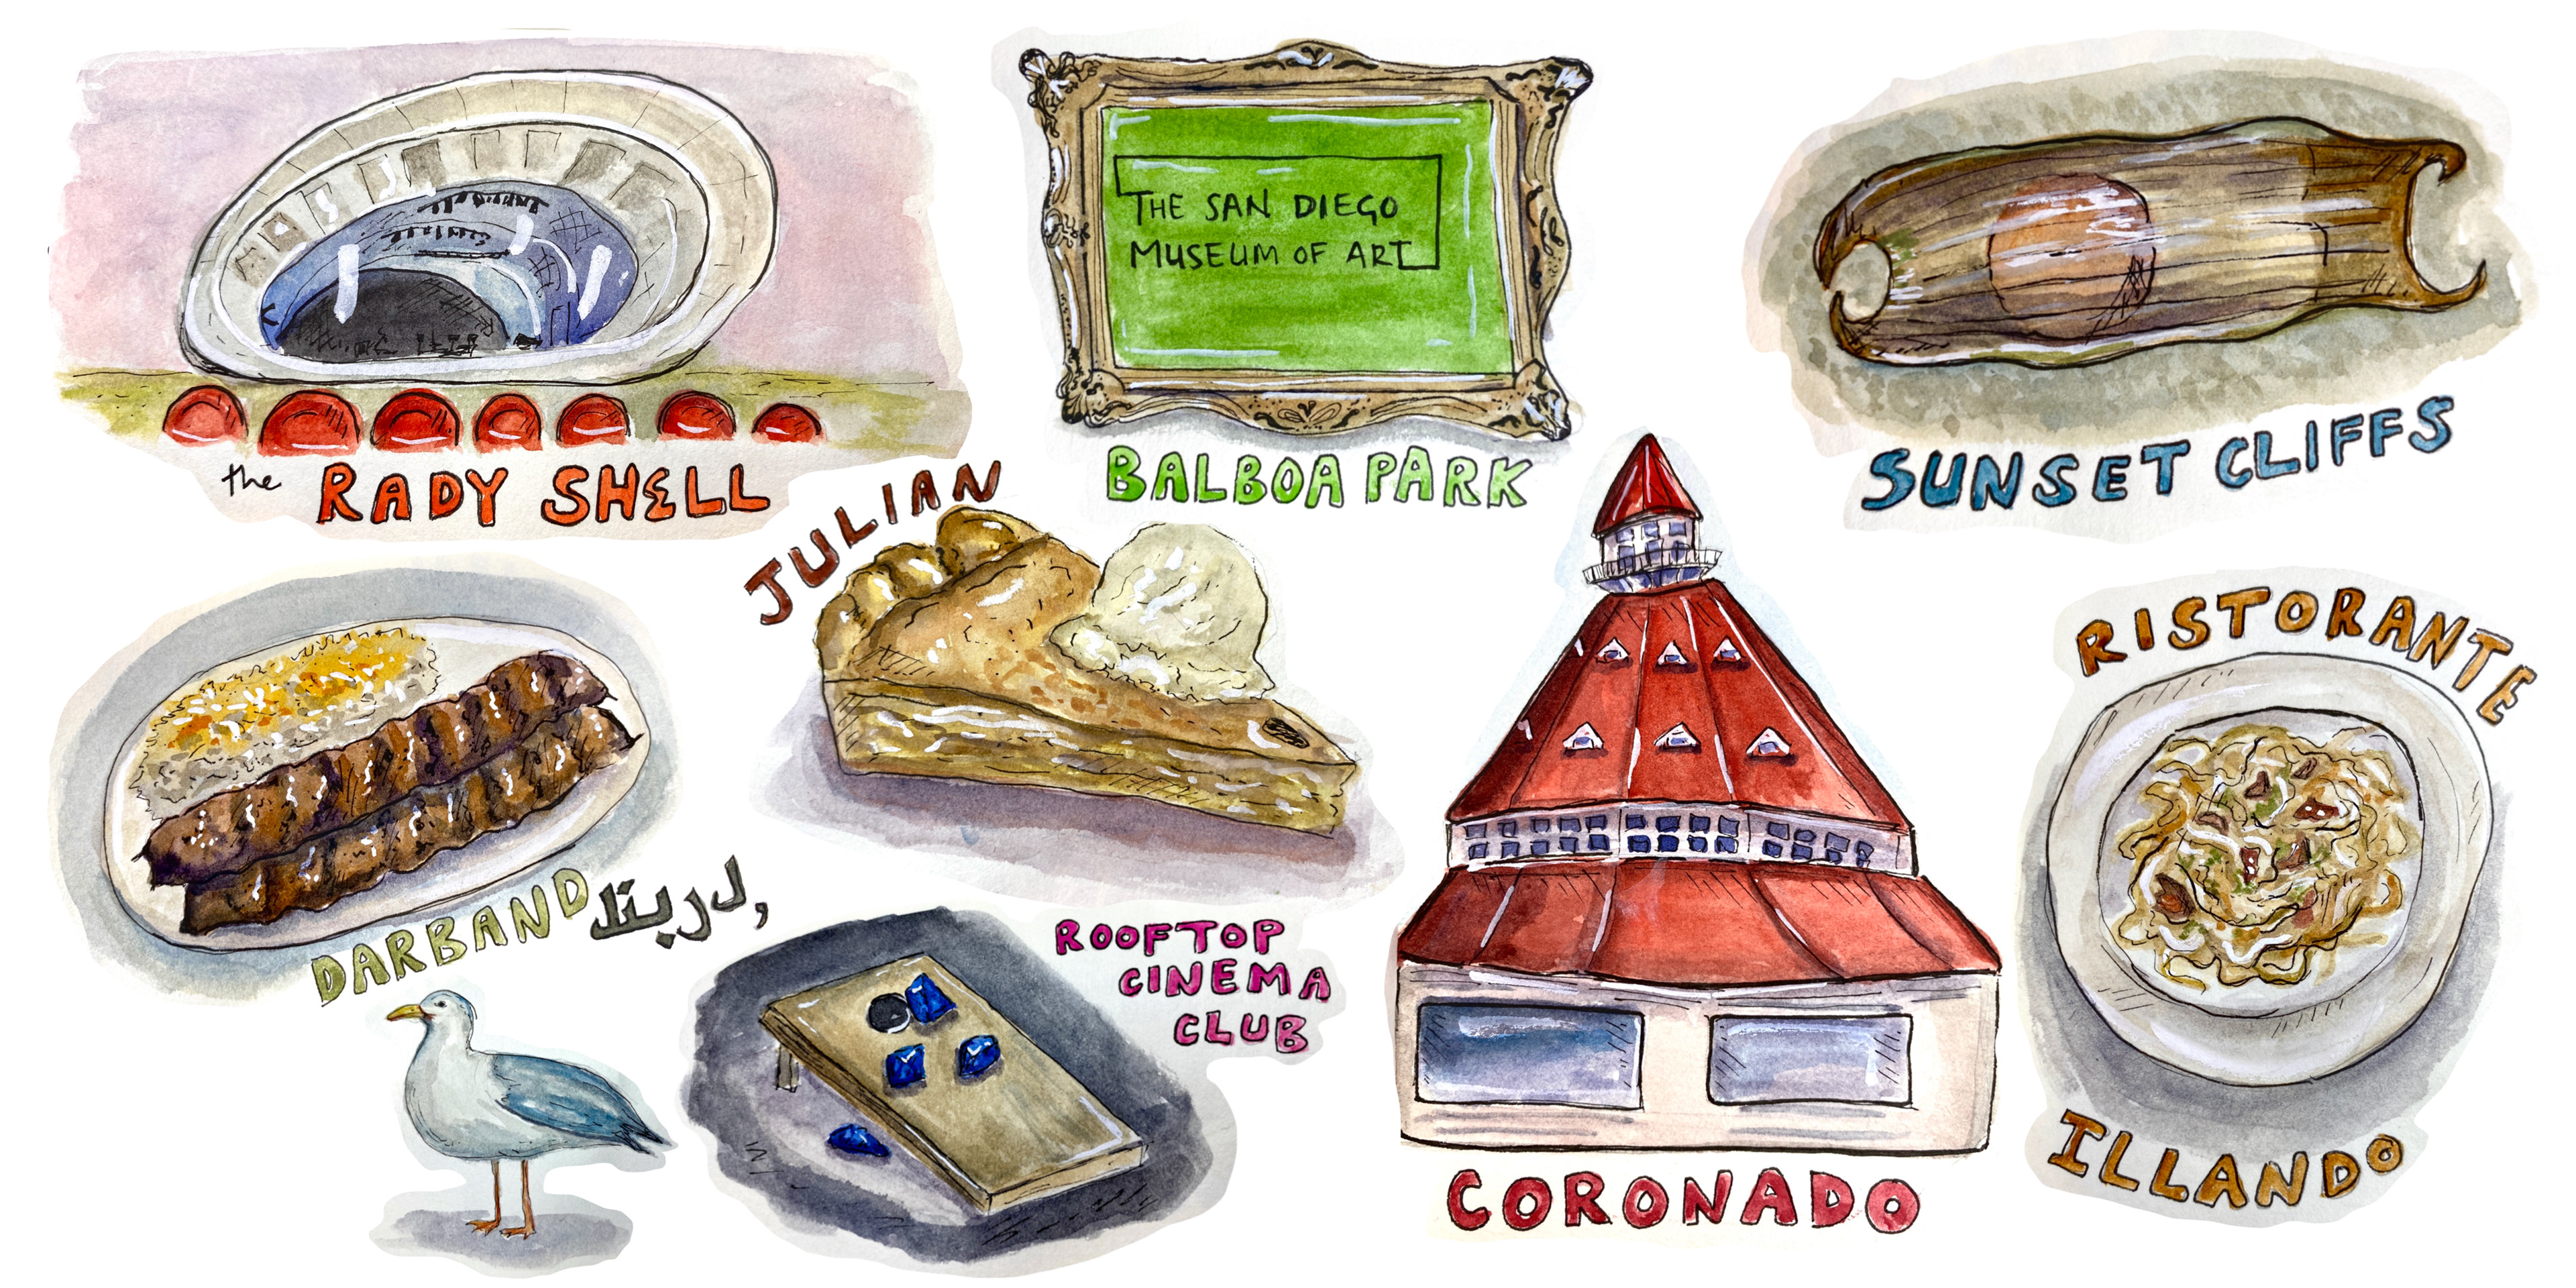 the RADY SHELL
THE SAN DIEGO
MUSEUM OF ART
BALBOA PARK
SUNSET CLIFFS
JULIAN
DARBAND
ROOFTOP
CINEMA
CLUB
CORONADO
RISTORANTE
ILLANDO